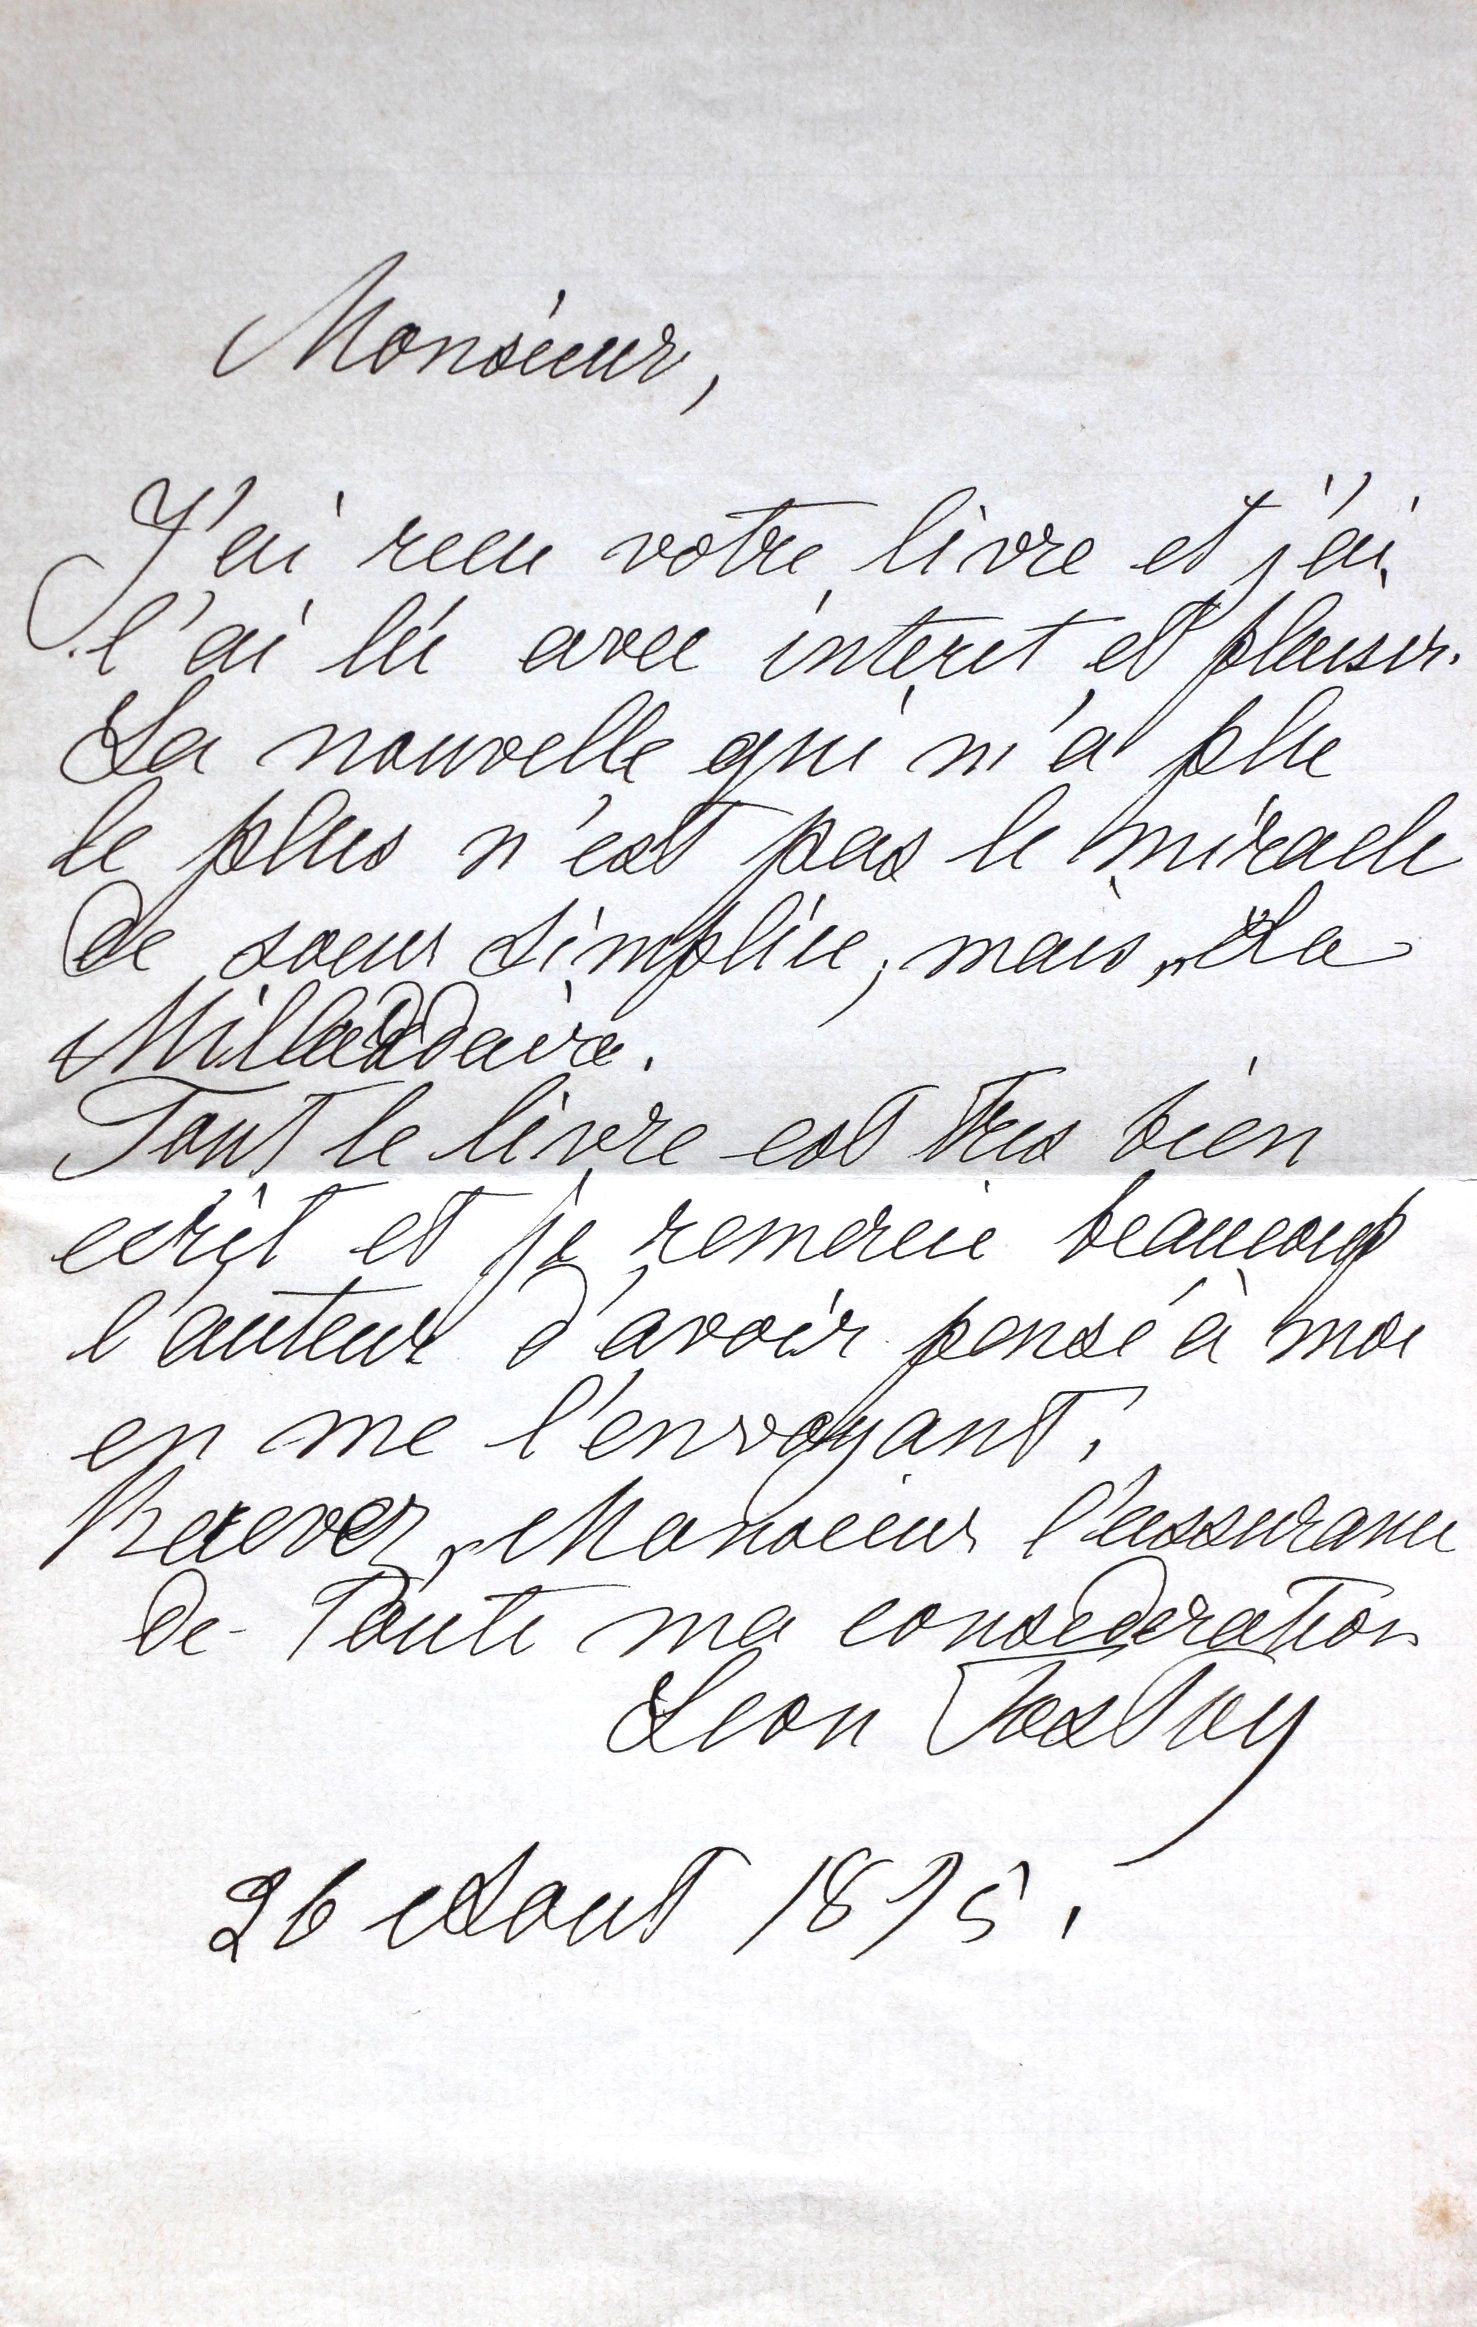 Monsieur,
J'ai recu votre livre et j'ai
l'ai lu avec interet et plaisir.
La nouvelle qui m'a plue
le plus n'est pas le miracle
de soeur Simplice, mais „La
Millardaire.
Tout le livre est tres bien
ecrit et je remercie beaucoup
l'auteur d'avoir pensé à moi
en me l'envoyant.
Recevez, Monsieur l'assurance
de toute ma consideration
Leon Tostoy
26 Aout 1895.